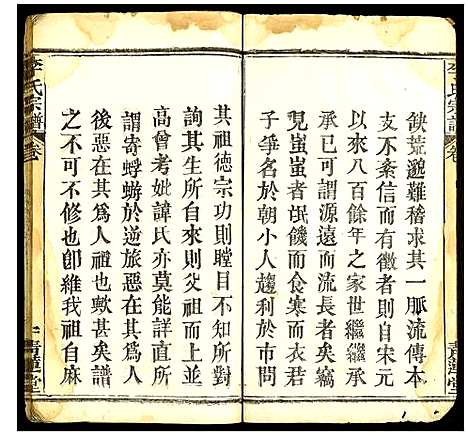 李氏宗譜
卷
缺荒邈難稽求其一脈流傳本
支不紊信而有徵者則自宋元
以來八百餘年之家世繼繼承
承已可謂源遠而流長者矣竊
見蚩蚩者氓饑而食寒而衣君
子爭名於朝小人趨利於市問
青蓮堂
其祖德宗功則瞠目不知所對
詢其生所自出則父祖而上而
高曾考妣諱氏亦莫能詳直所
謂寄蜉蝣於逆旅惡在其為人
後惡在其為人祖也歟甚矣譜
之不可不修也卽維我祖自麻
李氏宗譜
卷
青蓮堂